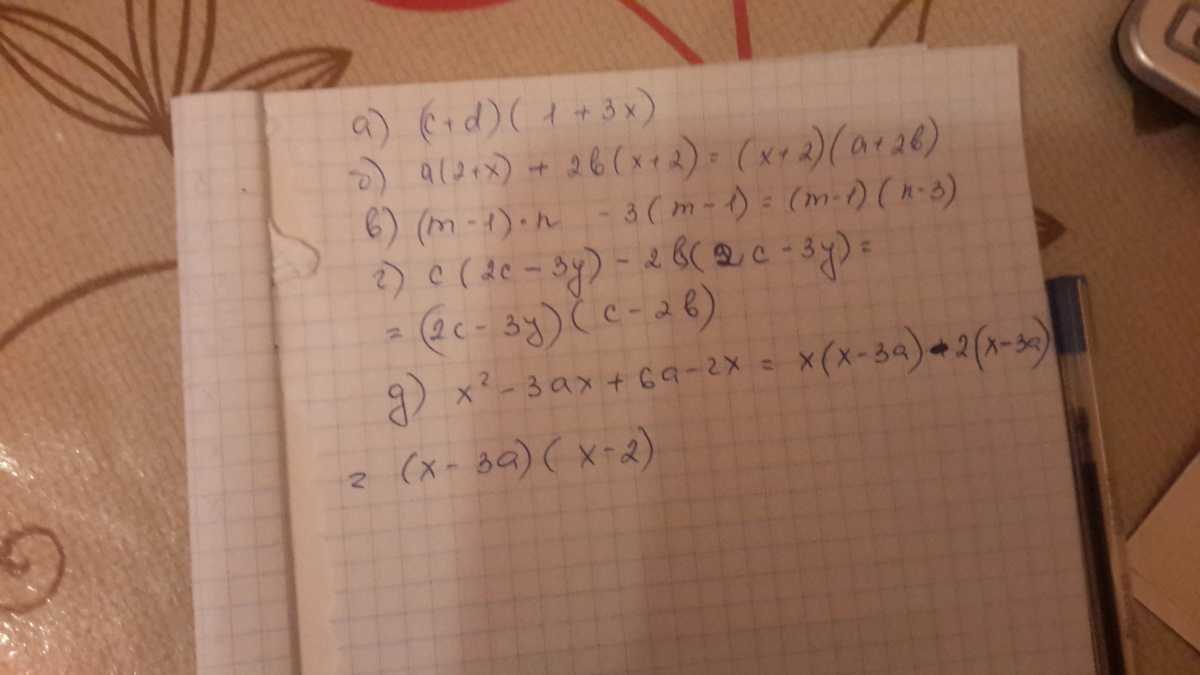 а) (c+d)(1+3x)
б) a(2+x) + 2b(x+2) = (x+2)(a+2b)
в) (m-1)·n - 3(m-1) = (m-1)(n-3)
г) c(2c-3y) - 2b(2c-3y) =
= (2c-3y)(c-2b)
д) x²-3ax+6a-2x = x(x-3a)-2(x-3a)
= (x-3a)(x-2)